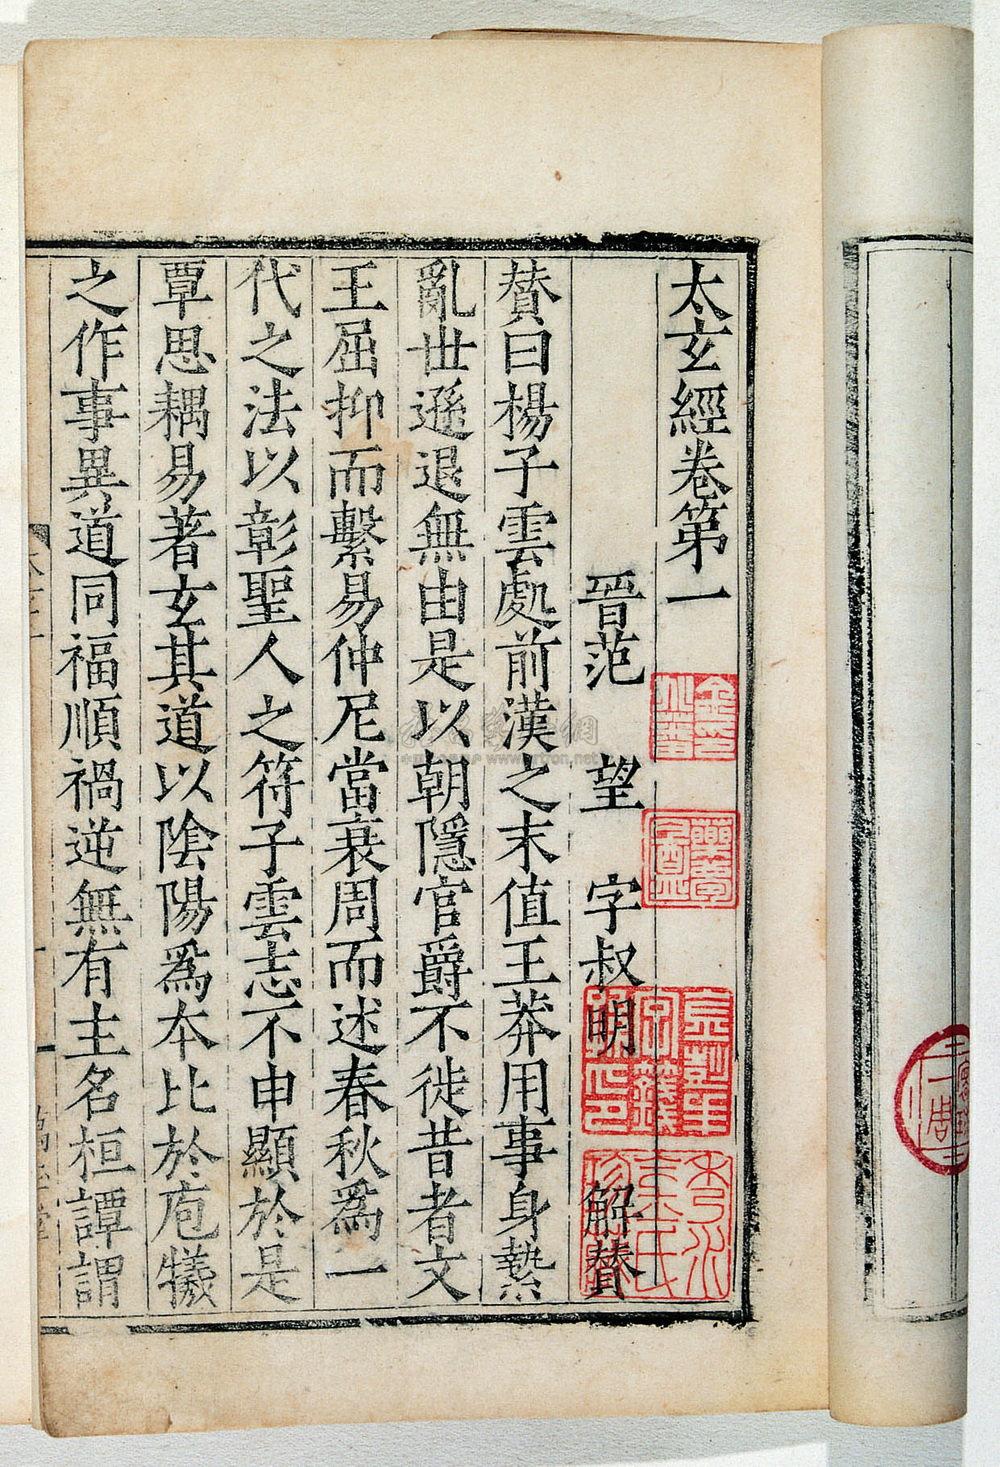 太玄經卷第一
晉范　望　字叔明　解贊
贊曰楊子雲處前漢之末值王莽用事身縶
亂世遜退無由是以朝隱官爵不徙昔者文
王屈抑而繫易仲尼當衰周而述春秋爲一
代之法以彰聖人之符子雲志不申顯於是
覃思耦易著玄其道以陰陽爲本比於庖犧
之作事異道同福順禍逆無有主名桓譚謂